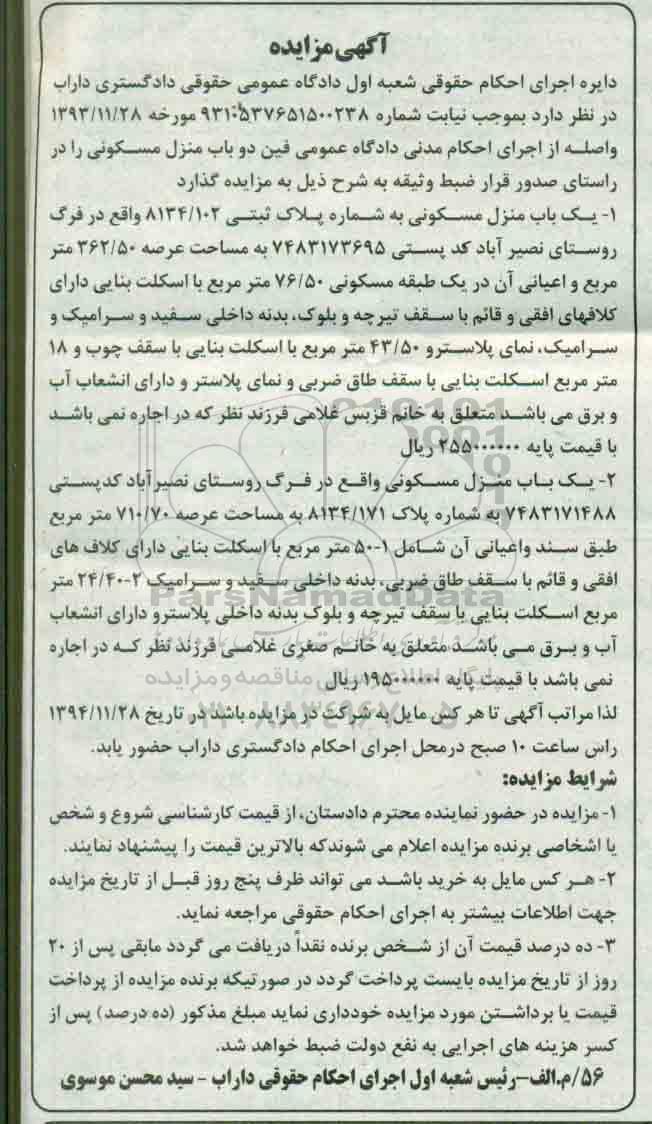 آگهی مزایده
دایره اجرای احکام حقوقی شعبه اول دادگاه عمومی حقوقی دادگستری داراب
در نظر دارد بموجب نیابت شماره ۹۳۱۰۵۳۷۶۵۱۵۰۰۲۳۸ مورخه ۱۳۹۳/۱۱/۲۸
واصله از اجرای احکام مدنی دادگاه عمومی فین دو باب منزل مسکونی را در
راستای صدور قرار ضبط وثیقه به شرح ذیل به مزایده گذارد
۱- یک باب منزل مسکونی به شماره پلاک ثبتی ۸۱۳۴/۱۰۲ واقع در فرگ
روستای نصیر آباد کد پستی ۷۴۸۳۱۷۳۶۹۵ به مساحت عرصه ۳۶۲/۵۰ متر
مربع و اعیانی آن در یک طبقه مسکونی ۷۶/۵۰ متر مربع با اسکلت بنایی دارای
کلافهای افقی و قائم با سقف تیرچه و بلوک، بدنه داخلی سفید و سرامیک و
سرامیک، نمای پلاسترو ۴۳/۵۰ متر مربع با اسکلت بنایی با سقف چوب و ۱۸
متر مربع اسکلت بنایی با سقف طاق ضربی و نمای پلاستر و دارای انشعاب آب
و برق می باشد متعلق به خانم قزبس غلامی فرزند نظر که در اجاره نمی باشد
با قیمت پایه ۲۵۵۰۰۰۰۰۰ ریال
۲- یک باب منزل مسکونی واقع در فرگ روستای نصیرآباد کدپستی
۷۴۸۳۱۷۱۴۸۸ به شماره پلاک ۸۱۳۴/۱۷۱ به مساحت عرصه ۷۱۰/۷۰ متر مربع
طبق سند واعیانی آن شامل ۱-۵۰ متر مربع با اسکلت بنایی دارای کلاف های
افقی و قائم با سقف طاق ضربی، بدنه داخلی سفید و سرامیک ۲-۲۴/۴۰ متر
مربع اسکلت بنایی با سقف تیرچه و بلوک بدنه داخلی پلاسترو دارای انشعاب
آب و برق می باشد متعلق به خانم صغری غلامی فرزند نظر که در اجاره
نمی باشد با قیمت پایه ۱۹۵۰۰۰۰۰۰ ریال
لذا مراتب آگهی تا هر کس مایل به شرکت در مزایده باشد در تاریخ ۱۳۹۴/۱۱/۲۸
راس ساعت ۱۰ صبح درمحل اجرای احکام دادگستری داراب حضور یابد.
شرایط مزایده:
۱- مزایده در حضور نماینده محترم دادستان، از قیمت کارشناسی شروع و شخص
یا اشخاصی برنده مزایده اعلام می شوندکه بالاترین قیمت را پیشنهاد نمایند.
۲- هر کس مایل به خرید باشد می تواند ظرف پنج روز قبل از تاریخ مزایده
جهت اطلاعات بیشتر به اجرای احکام حقوقی مراجعه نماید.
۳- ده درصد قیمت آن از شخص برنده نقداً دریافت می گردد مابقی پس از ۲۰
روز از تاریخ مزایده بایست پرداخت گردد در صورتیکه برنده مزایده از پرداخت
قیمت یا برداشتن مورد مزایده خودداری نماید مبلغ مذکور (ده درصد) پس از
کسر هزینه های اجرایی به نفع دولت ضبط خواهد شد.
۵۶/م.الف-رئیس شعبه اول اجرای احکام حقوقی داراب - سید محسن موسوی
ParsNamadData
پایگاه اطلاع رسانی مناقصه و مزایده